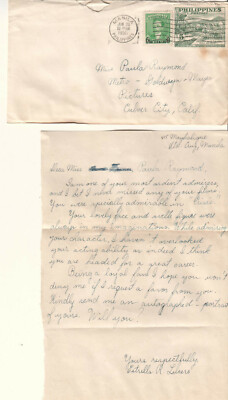 MANILA
PHILIPPINES
PHILIPPINES
Miss Paula Raymond
Metro - Goldwyn - Mayer
Pictures
Culver City, Calif.
Manila
Dear Miss Paula Raymond,
I am one of your most ardent admirers,
and I bet I never missed any of your films.
You were specially admirable in "Crisis
Your lovely face and
always in my While admiring
your character & charm I overlooked
your acting ability so instead I think
you are headed for a great career.
Being a loyal fan I hope you won't
deny me if I request a favor from you.
Kindly send me an autographed portrait
of yours. Will you?
Yours respectfully,
Estrella R.